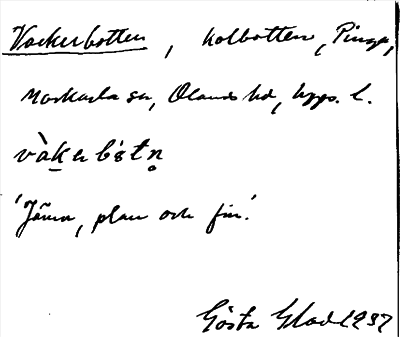 Vackerbotten, kolbotten, Pinga,
Morkarla sn, Olands hd, Upps. l.
vàk̠erbɷ́tn̥
'Jämn, plan och fin.'
Gösta Glad 1937